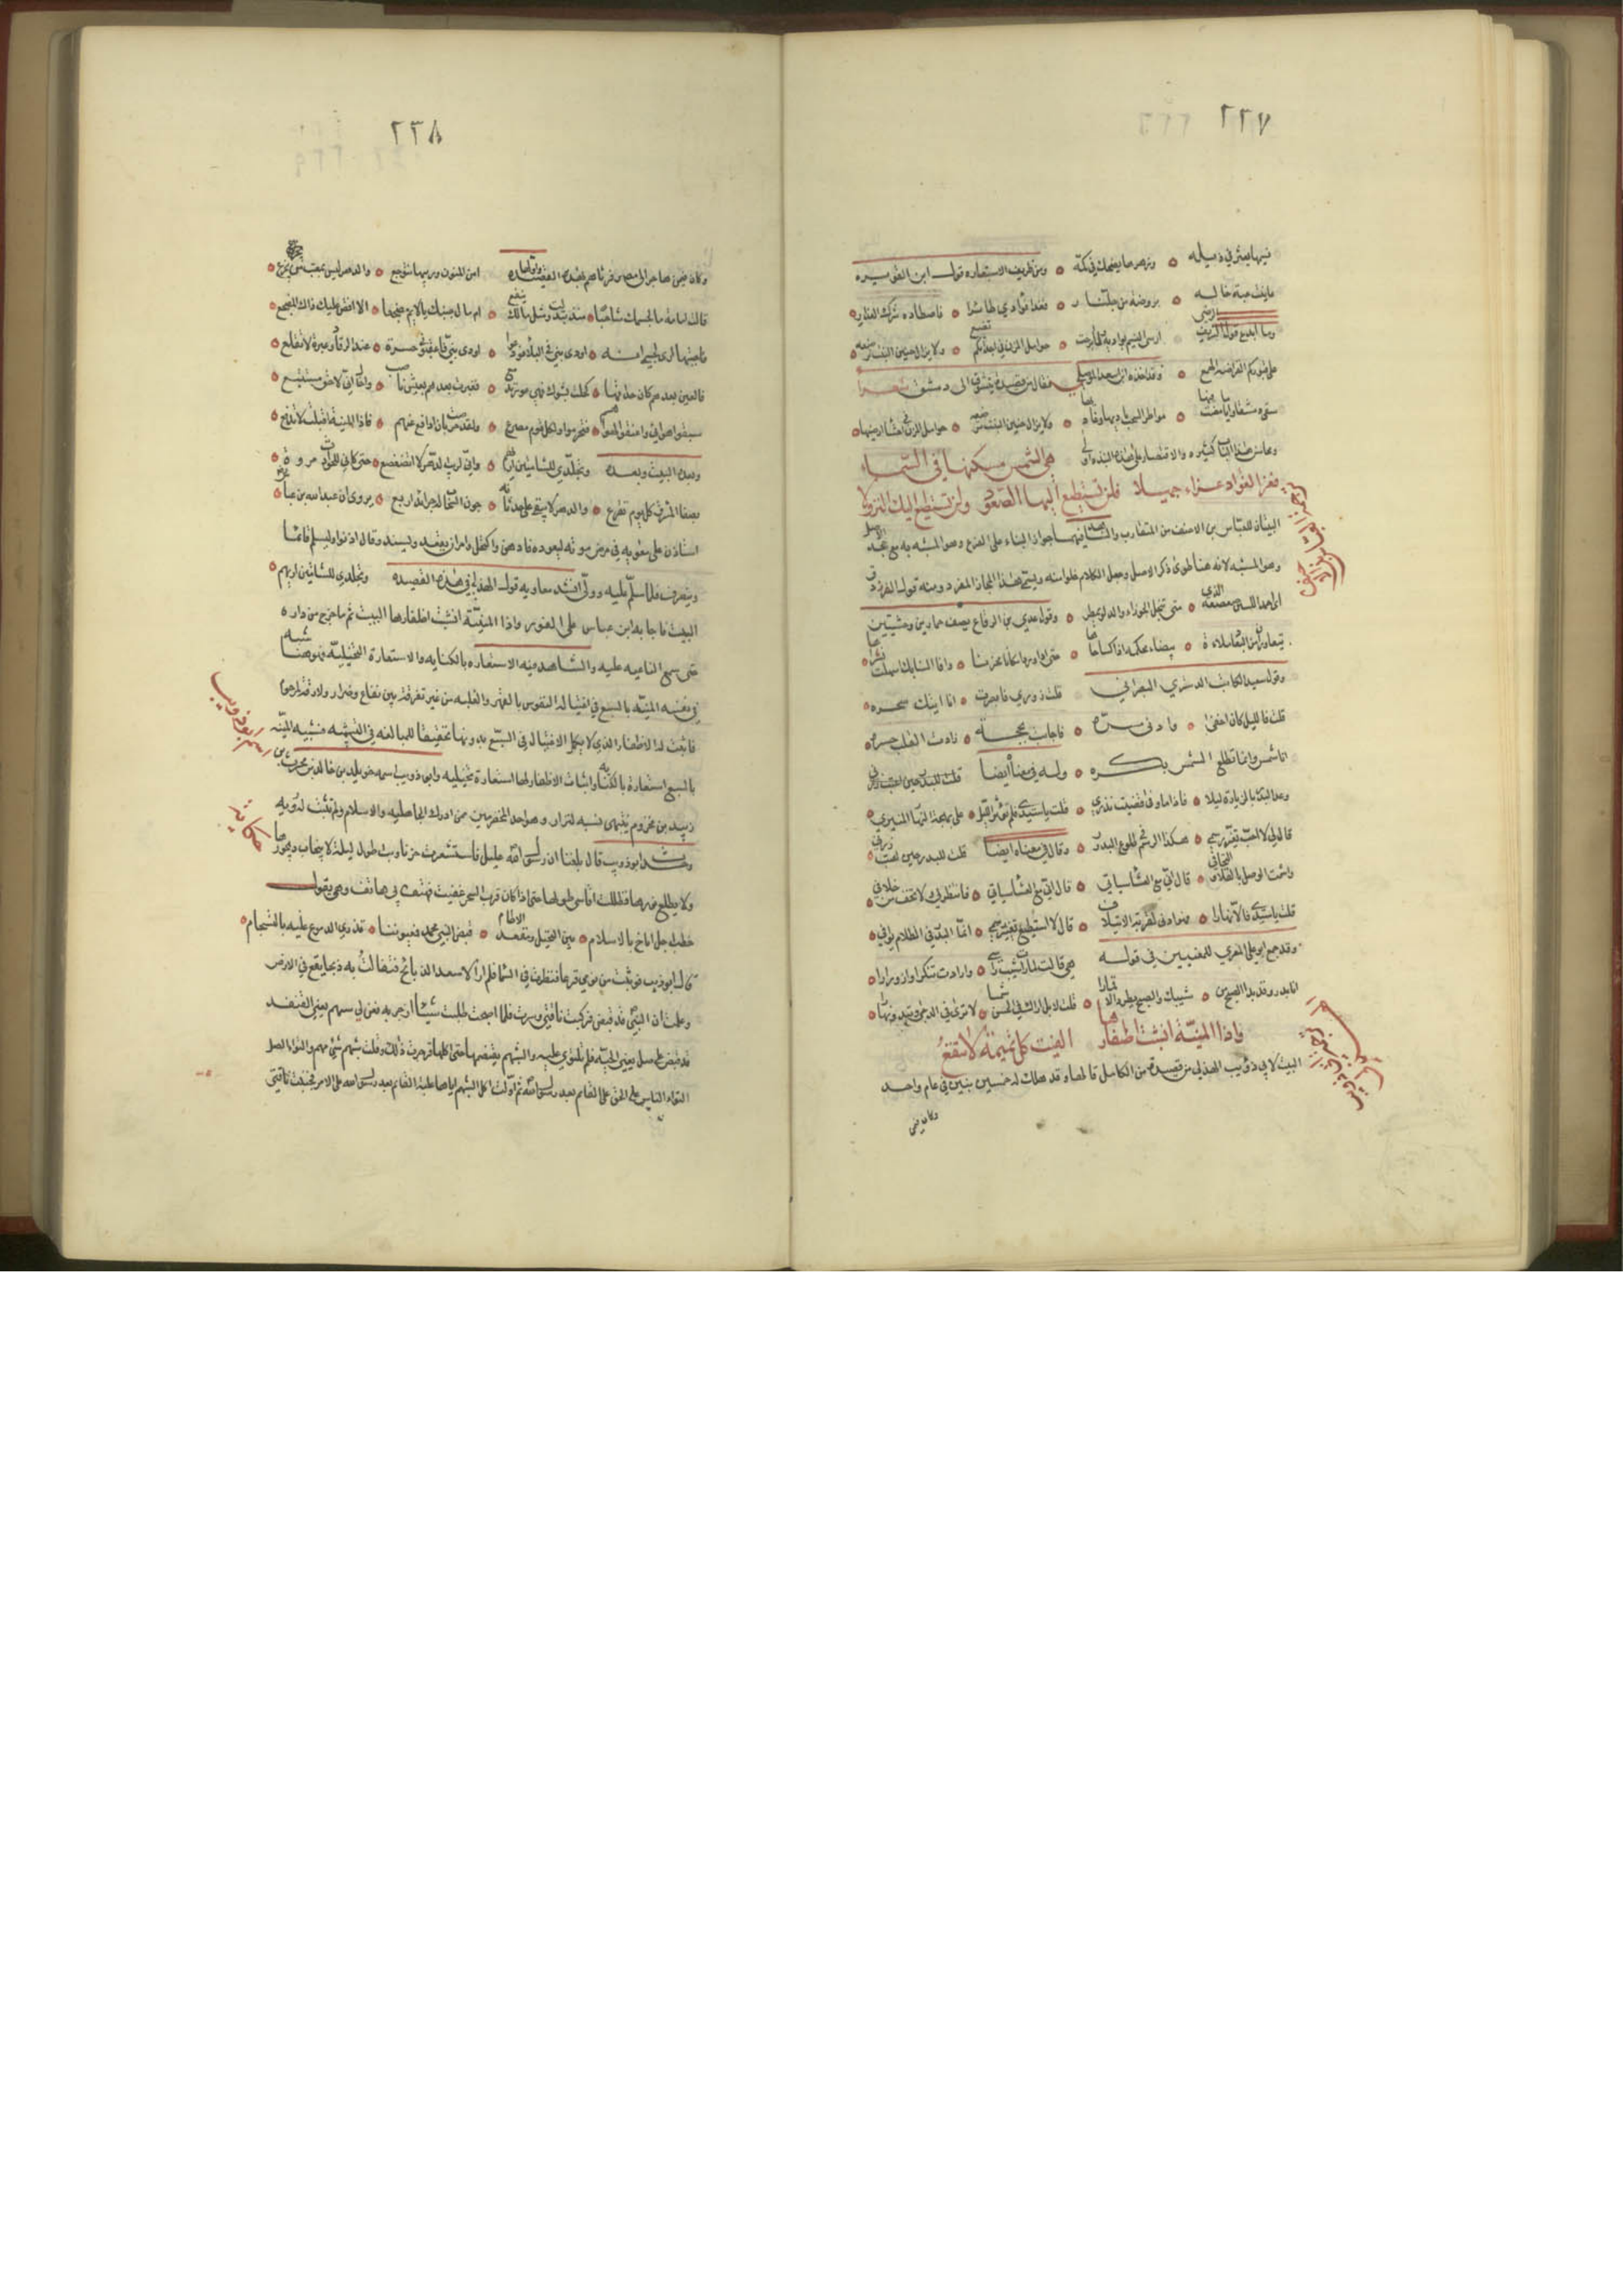 ٢٢٧
فيها يعثر في ذيله ٥ وزهرها يضحك في كمه ٥ ومن ظريف الاستعاره قول ابن الغويره
عاينت حبة خاله ٥ بروضة من جلنار ٥ فغدا فؤادي طائرا ٥ فاصطاده شرك العذار
وما ابدع قول الشريف الرضي ارسى النسيم بواديكم ولا برحت ٥ حوامل المزن في اجداثكم تضع ٥ ولا يزال جنين النبت ترضعه
على قبوركم العراصة الهمع ٥ وقد اخذه ابن اسعد الموصلي فقال من قصيدة يتشوق الى دمشق شعرا
سقى دمشق وايامًا مضت بها ٥ مواطر السحب ساريها وغاديها ٥ ولا يزال جنين النبت ترضعه ٥ حوامل المزن في احشا اراضيها
ومحاسن هذا الباب كثيره والاقتصار على هذه النبذه اولى هي الشمس مسكنها في السماء
فعز الفؤاد عزاء جميلا فلن تستطيع اليها الصعود ولن تستطيع اليك النزولا
البيتان للعباس بن الاحنف من المتقارب والشاهد فيهما جواز البناء على الفرع وهو المشبه به مع جحد الاصل
وهو المشبه لانه هنا طوى ذكر الاصل وجعل الكلام خلوا منه ويسمى هذا المجاز المفرد ومنه قول الفرزدق
ابي احمد الغيثين صعصعة الذي ٥ متى تخل الجوزاء والدلو يمطر ٥ وقول عدي بن الرقاع يصف حمارين وحشيين
يتعاوران من الغبار ملاءة ٥ بيضاء محكمة اذا كساها ٥ حتى اذا وردا مكانا عزمنا ٥ واذا السنابك اسهلت نشراها
وقول سعيد الكاتب التستري النصراني قلت زوري فاجابت ٥ انا اتيك سحره
قلت فالليل كان اخفى ٥ وادنى مسره ٥ فاجابت بحجة ٥ زادت القلب حسره
انا شمس وانما تطلع الشمس بكره ٥ وله في معناه ايضا قلت للبدر حين اعتب زرني
وعد البيت بالزيارة ليلا ٥ فاذا ما وفى قضيت نذري ٥ قلت ياسيدي فلم تؤثر الليل ٥ على بهجة النهار المنير
قال لي لا احب تغيير رسمي ٥ هكذا الرسم في طلوع البدر ٥ وقال في معناه ايضا قلت للبدر حين اعتب زرني
واشمت الوصل بالقلى والتجافي ٥ قال اني مع العشا سياتي ٥ قال اني مع العشا سياتي ٥ فانتظرني ولا تخف من خلافي
قلت ياسيدي فالا نهارا ٥ فهو ادنى لقرب الائتلاف ٥ قال لا استطيع تغيير رسمي ٥ انما البدر في الظلام يوافي
وقد جمع ابو علي المعري للمعنيين في قوله هي قالت لما رات شيب راسي ٥ وارادت تنكرا وازورارا
انا بدر وقد بدا الصبح من ٥ شيبك والصبح يطرد الاقمارا ٥ قلت لا بل اراك في الحسن شمسا ٥ لا ترى في الدجى وتبدو نهارا
واذا المنية انشبت اظفارها الفيت كل تميمة لا تنفع
البيت لابي ذؤيب الهذلي من قصيدة من الكامل قالها وقد هلك له خمسة بنين في عام واحد
وكان فيمن
٢٣٨
وكان فيمن هاجر الى مصر فرثاهم بهذه القصيده واولها امن المنون وريبها تتوجع ٥ والدهر ليس بمعتب من يجزع ٥
قالت امامة ما لجسمك شاحبا ٥ منذ ابتذلت ومثل مالك ينفع ٥ ام ما لجنبك لا يلائم مضجعا ٥ الا اقض عليك ذاك المضجع ٥
فاجبتها ان ما لجسمي انه ٥ اودى بني من البلاد فودعوا ٥ اودى بني فاعقبوني حسرة ٥ عند الرقاد وعبرة لا تقلع ٥
فالعين بعدهم كان حداقها ٥ كحلت بشوك فهي عور تدمع ٥ فغبرت بعدهم بعيش ناصب ٥ واخال اني لاحق مستتبع ٥
سبقوا هوي واعنقوا لهواهم ٥ فتخرموا ولكل قوم مصرع ٥ ولقد حرصت بان ادافع عنهم ٥ فاذا المنية اقبلت لا تدفع ٥
وبعده البيت وبعده وتجلدي للشامتين اريهم ٥ واني لريب الدهر لا اتضعضع ٥ حتى كاني للحوادث مروة ٥
بصفا المشرق كل يوم تقرع ٥ والدهر لا يبقى على حدثانه ٥ جون السحاب له جدائد اربع ٥ يروى ان عبد الله بن عباس
استاذن على معويه في مرض موته ليعوده فادهن واكتحل وامر ان يقعد ويسند وقال ائذنوا وليسلم قائما
وينصرف فلما سلم عليه وولى انشد معاويه قول الهذلي في هذه القصيده وتجلدي للشامتين اريهم ٥
البيت فاجابه ابن عباس على الفور واذا المنية انشبت اظفارها البيت ثم ما خرج من داره
حتى سمع الناعيه عليه والشاهد فيه الاستعاره بالكنايه والاستعارة التخييلية فهو هنا شبه
في نفسه المنية بالسبع في اغتيال النفوس بالقهر والغلبه من غير تفرقة بين نفاع وضرار ولا رقة لمرحوم
فاثبت لها الاظفار الذي لا يكمل الاغتيال في السبع بدونها تحقيقا للمبالغه في التشبيه فتشبيه المنيه
بالسبع استعارة بالكناية واثبات الاظفار لها استعارة تخييليه وابو ذؤيب اسمه خويلد بن خالد بن محرث بن
زبيد بن مخزوم ينتهي نسبه لنزار وهو احد المخضرمين ممن ادرك الجاهليه والاسلام ولم تثبت له رؤيه
وحدث ابو ذويب قال بلغنا ان رسول الله عليل فاستشعرت حزنا وبت طول ليلة لا ينجاب ديجورها
ولا يطلع نورها فظللت اقاسي طولها حتى اذا كان قرب السحر غفيت فهتف بي هاتف وهو يقول
خطب اجل اناخ بالاسلام ٥ بين النخيل ومقعد الاطام ٥ قبض النبي محمد فعيوننا ٥ تذري الدموع عليه بالتسجام ٥
قال ابو ذويب فوثبت من نومي فزعا فنظرت في السما فلم ار الا سعد الذابح فتفالت به ذبحا يقع في الارض
وعلمت ان النبي قد قبض فركبت ناقتي وسرت فلما اصبحت طلبت شيئا ازجر به فعن لي سهم يعني القنفذ
قد قبض على صل يعني الحيه فهي تلتوي عليه والشيهم يقضمها حتى اكلها فزجرت ذلك وقلت شيهم شئ مهم والتواء الصل
التواء الناس على الحق على القائم بعد رسول الله ثم اولت اكل الشيهم اياها غلبة القائم بعد رسول الله على الامر فحثثت ناقتي
اسم ابو ذويب
حكاية